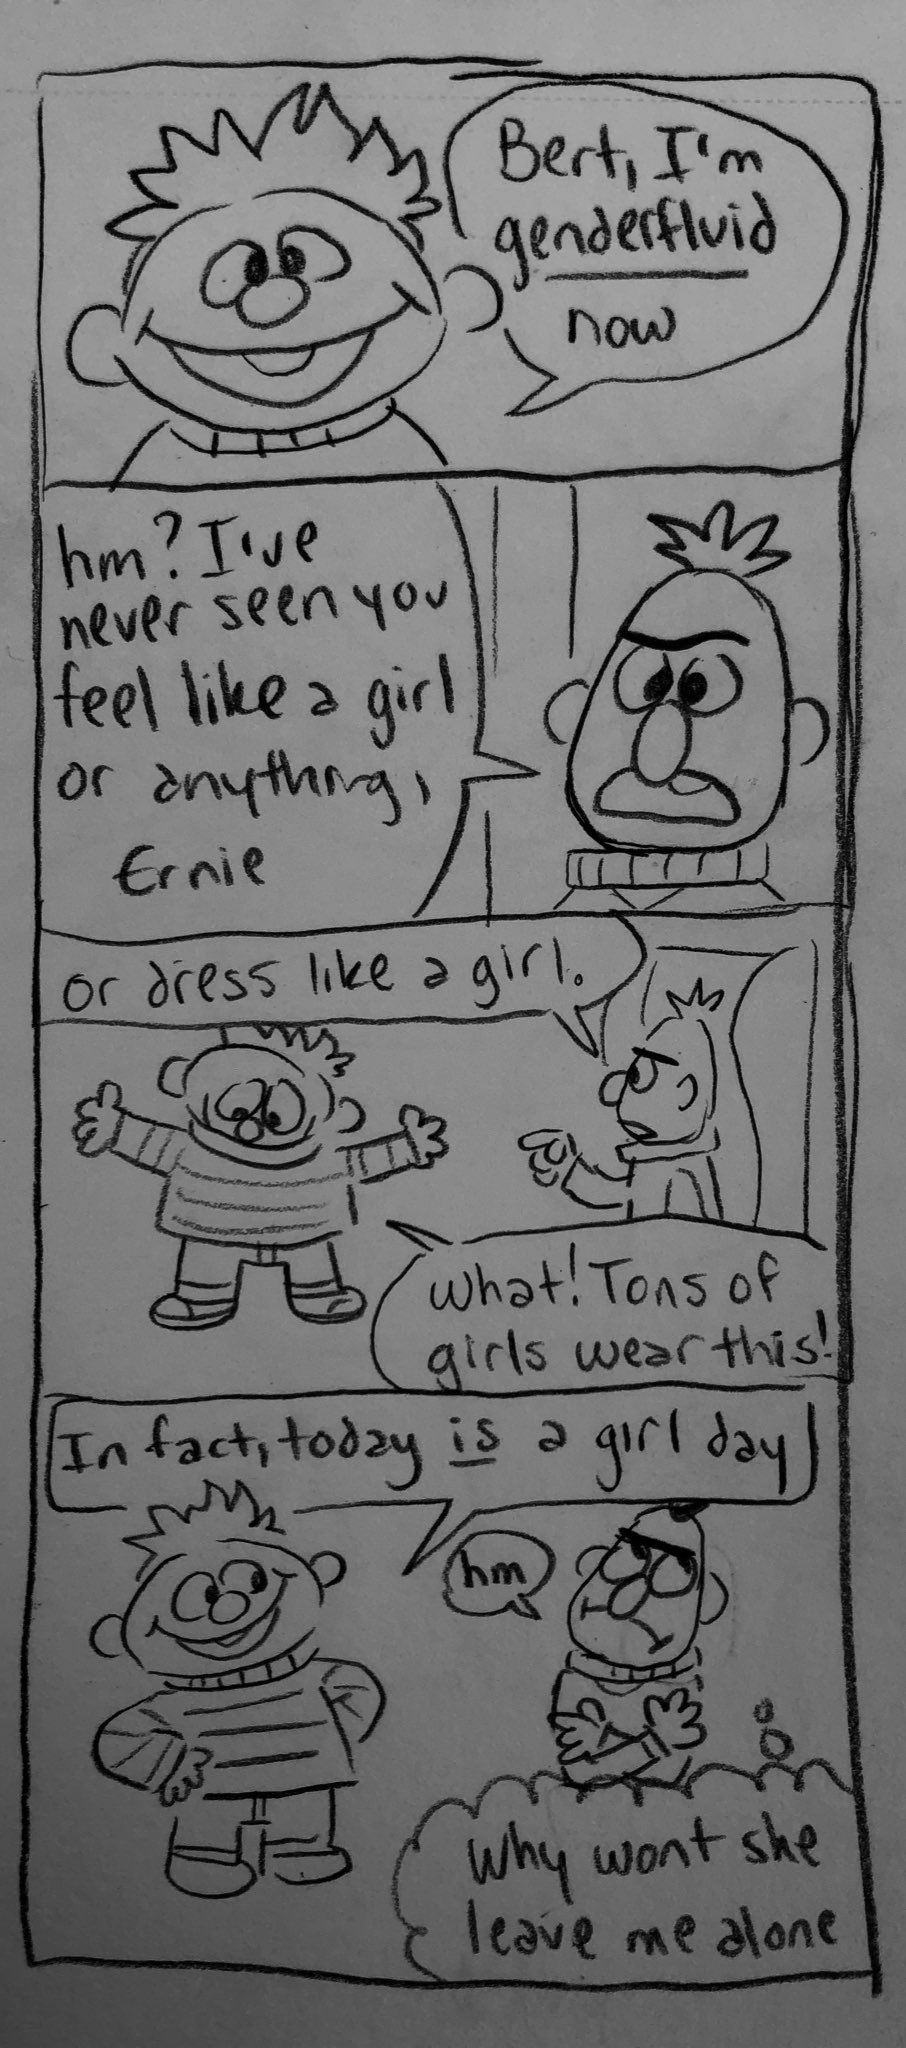 Bert, I'm
genderfluid
now
hm? I've
never seen you
feel like a girl
or anything,
Ernie
or dress like a girl.
what! Tons of
girls wear this!
In fact, today is a girl day
hm
Why wont she
leave me alone